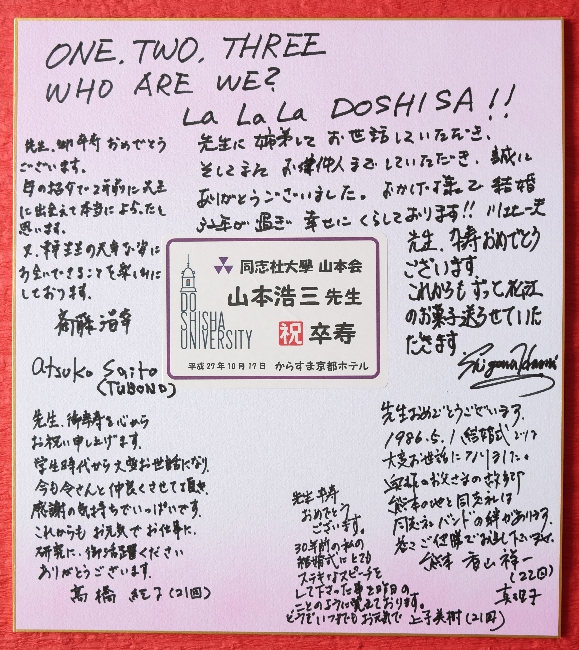 ONE, TWO, THREE
WHO ARE WE?
La La La DOSHISA!!
先生、御卒寿おめでとう
ございます。
に出会えて本当によかったと
思います。
お会いできることを楽しみに
しております。
斎藤
atsuko Saito
(TUBONO)
先生に 姉弟して お世話していただき、
そしてまた お仲人までしていただき、誠に
ありがとうございました。おかげ様で 結婚
年が過ぎ 幸せにくらしております!!
先生、卒寿おめでとう
ございます
これからもずっと松江
のお菓子送らせていた
だきます
DOSHISHA UNIVERSITY
同志社大學 山本会
山本浩三 先生
祝 卒寿
平成27年10月17日 からすま京都ホテル
先生、御卒寿を心から
お祝い申し上げます。
学生時代から大変お世話になり、
今も令さんと仲良くさせて頂き
感謝の気持ちでいっぱいです。
これからも お元気で お仕事に、
研究に、御活躍ください
ありがとうございます。
高橋 純子(21回)
先生 卒寿
おめでとう
ございます。
30年前の私の
結婚式にとても
ステキなスピーチを
して下さった事を昨日の
ことのように覚えております。
どうぞいつまでもお元気で 上子美樹(21回)
先生おめでとうございます。
1986.5.1 結婚式では
大変お世話になりました。
熊本の地と同志社は
バンドの絆があります。
熊本 香山祥一
(22回)